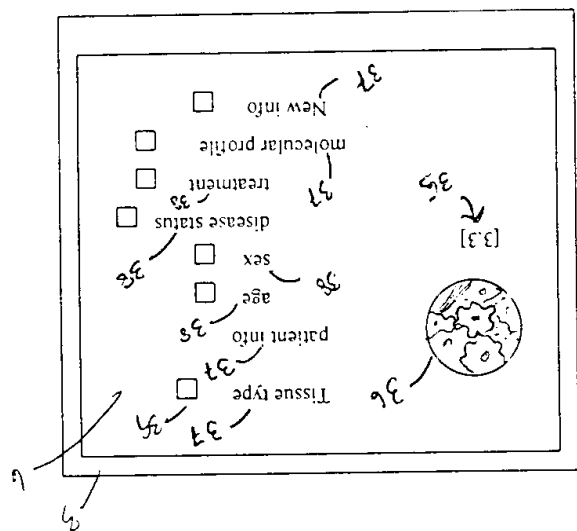 3
6
36
37 39
Tissue type
37
patient info
38
age
38
sex
[3.3]
35
38
disease status
38
treatment
37
molecular profile
37
New info